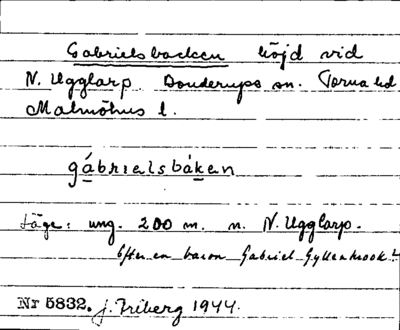 Gabrielsbacken höjd vid
N. Ugglarp Bonderups sn. Torna hd
Malmöhus l.
gábrielsbákan
Läge: ung. 200 m. n. N. Ugglarp.
Efter en baron Gabriel Gyllenkrook?
Nr 5832. J. Friberg 1944.